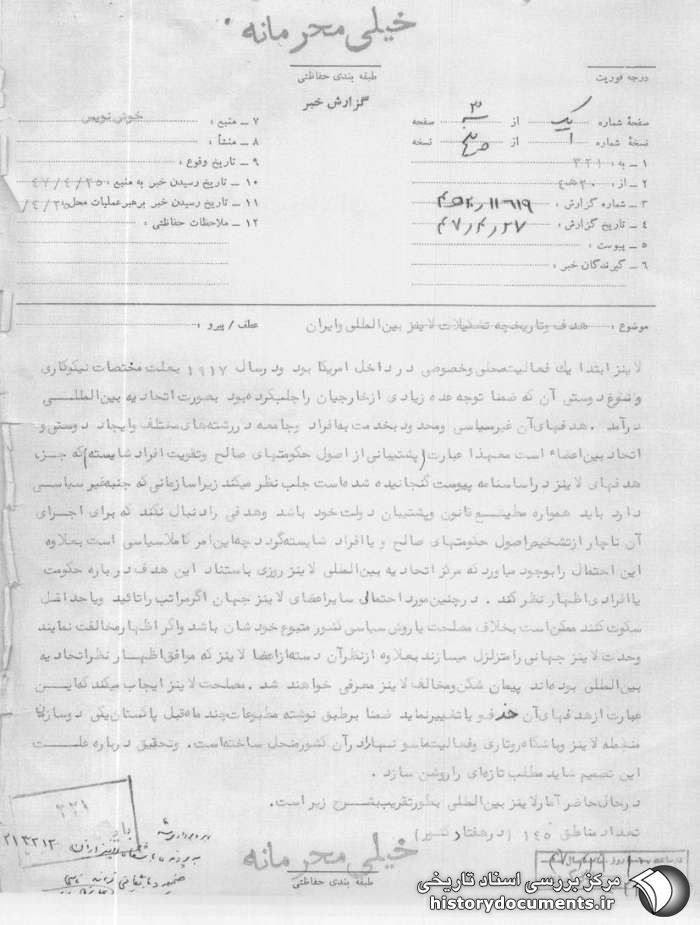 خیلی محرمانه
طبقه بندی حفاظتی
درجه فوریت
گزارش خبر
صفحهٔ شماره یک از ۳ صفحه
نسخهٔ شماره ۱ از نسخه
۱ ـ به : ۳۲۱
۲ ـ از : ۲۰ ه‍ ۴
۳ ـ شماره گزارش : ۱۱۶۱۹
۴ ـ تاریخ گزارش : ۴۷/۴/۲۷
۵ ـ پیوست :
۶ ـ گیرندگان خبر :
۷ ـ منبع : خوش نویس
۸ ـ منشأ :
۹ ـ تاریخ وقوع :
۱۰ ـ تاریخ رسیدن خبر به منبع : ۴۷/۴/۲۵
۱۱ ـ تاریخ رسیدن خبر برهبر عملیات محل :
۱۲ ـ ملاحظات حفاظتی :
موضوع : هدف و تاریخچه تشکیلات لاینز بین المللی و ایران
عطف / پیرو :
لاینز ابتدا یک فعالیت محلی و خصوصی در داخل امریکا بود و در سال ۱۹۱۷ بعلت مختصات نیکوکاری
و نوع دوستی آن که ضمنا توجه عده زیادی از خارجیان را جلب کرده بود بصورت اتحادیه بین المللی
درآمد . هدفهای آن غیر سیاسی و محدود بخدمت به افراد و جامعه در رشته های مختلف و ایجاد دوستی و
اتحاد بین اعضاء است معهذا عبارت (پشتیبانی از اصول حکومتهای صالح و تقویت افراد شایسته) که جزء
هدفهای لاینز در اساسنامه پیوست گنجانیده شده است جلب نظر میکند زیرا سازمانی که جنبه غیر سیاسی
دارد باید همواره مطیع قانون و پشتیبان دولت خود باشد و هدفی را دنبال نکند که برای اجرای
آن ناچار از تشخیص اصول حکومتهای صالح و یا افراد شایسته گردد چه این امر کاملا سیاسی است بعلاوه
این احتمال را بوجود میاورد که مرکز اتحادیه بین المللی لاینز روزی باستناد این هدف درباره حکومت
یا افرادی اظهار نظر کند . در چنین مورد احتمالی سایر اعضای لاینز جهان اگر مراتب را تائید و یا حداقل
سکوت کنند ممکن است بخلاف مصلحت یا روش سیاسی کشور متبوع خودشان باشد و اگر اظهار مخالفت نمایند
وحدت لاینز جهانی را متزلزل میسازند بعلاوه از نظر آن دسته از اعضا لاینز که موافق اظهار نظر اتحادیه
بین المللی بوده اند پیمان شکن و مخالف لاینز معرفی خواهند شد . مصلحت لاینز ایجاب میکند که این
عبارت از هدفهای آن حذف و یا تغییر نماید ضمنا بر طبق نوشته مطبوعات چند ماه قبل پاکستان یکی دو سازمان
منطقه لاینز و باشگاه روتاری و فعالیت ماسونها را در آن کشور منحل ساخته است . و تحقیق درباره علت
این تصمیم شاید مطلب تازه ای را روشن سازد .
در حال حاضر آمار لاینز بین المللی بطور تقریب بشرح زیر است .
تعداد مناطق ۱۴۵ (در هفتاد کشور)
۳۲۱
۲۱۳۳۱۲
خیلی محرمانه
طبقه بندی حفاظتی
مرکز بررسی اسناد تاریخی
historydocuments.ir